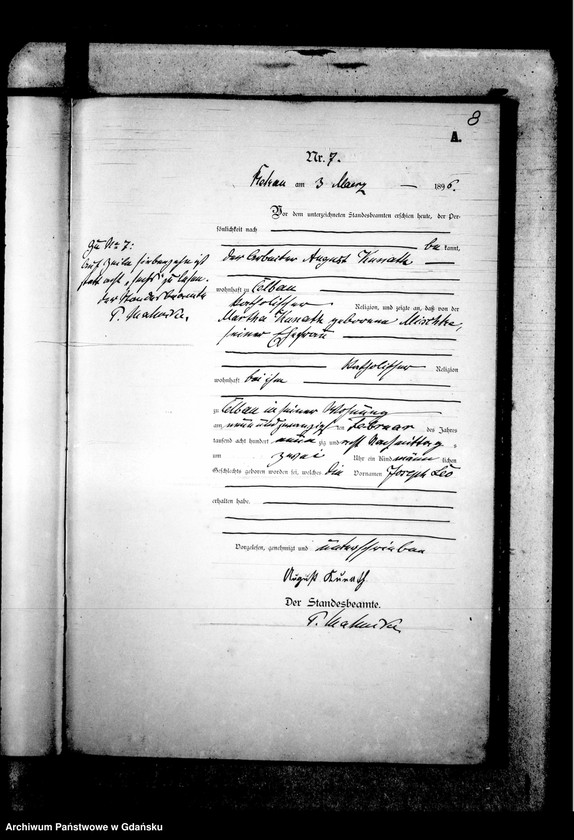 8
A.
Nr. 7.
am 3 Maerz 1896.
Vor dem unterzeichneten Standesbeamten erschien heute, der Per-
sönlichkeit nach
be kannt,
der Arbeiter August Kunath
wohnhaft zu Celbau
katholischer Religion, und zeigte an, daß von der
Martha Kunath geborene Mischke,
seiner Ehefrau
katholischer Religion
wohnhaft bei ihm
zu Celbau in seiner Wohnung
am neun und zwanzigsten Februar des Jahres
tausend acht hundert neun zig und acht Nachmittags
um zwei Uhr ein Kind männ lichen
Geschlechts geboren worden sei, welches die Vornamen Joseph Leo
erhalten habe.
Vorgelesen, genehmigt und unterschrieben
August Kunath
Der Standesbeamte.
Zu No 7:
Auf Zeile siebenzehn ist
statt acht "sechs" zu lesen.
Der Standesbeamte
Archiwum Państwowe w Gdańsku